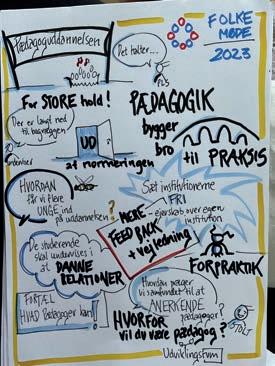 Pædagoguddannelsen
FOLKE
MØDE
2023
Det halter...
PLS
For STORE hold!
Der er langt ned
til bagvæggen
UD
af normeringen
PÆDAGOGIK
bygger
bro
til PRAKSIS
HVORDAN
får vi flere
UNGE ind
på uddannelsen?
Sæt institutionerne
FRI
- ejerskab over egen
institution
MERE
FEEDBACK
+ vejledning
De studerende
skal undervises i
at
DANNE
RELATIONER
FORPRAKTIK
Hvordan præger
vi samfundet til at
ANERKENDE
pædagoger?
FORTÆL
HVAD Pædagoger kan!!
HVORFOR
vil du være pædagog?
STOLT
Udviklingsrum